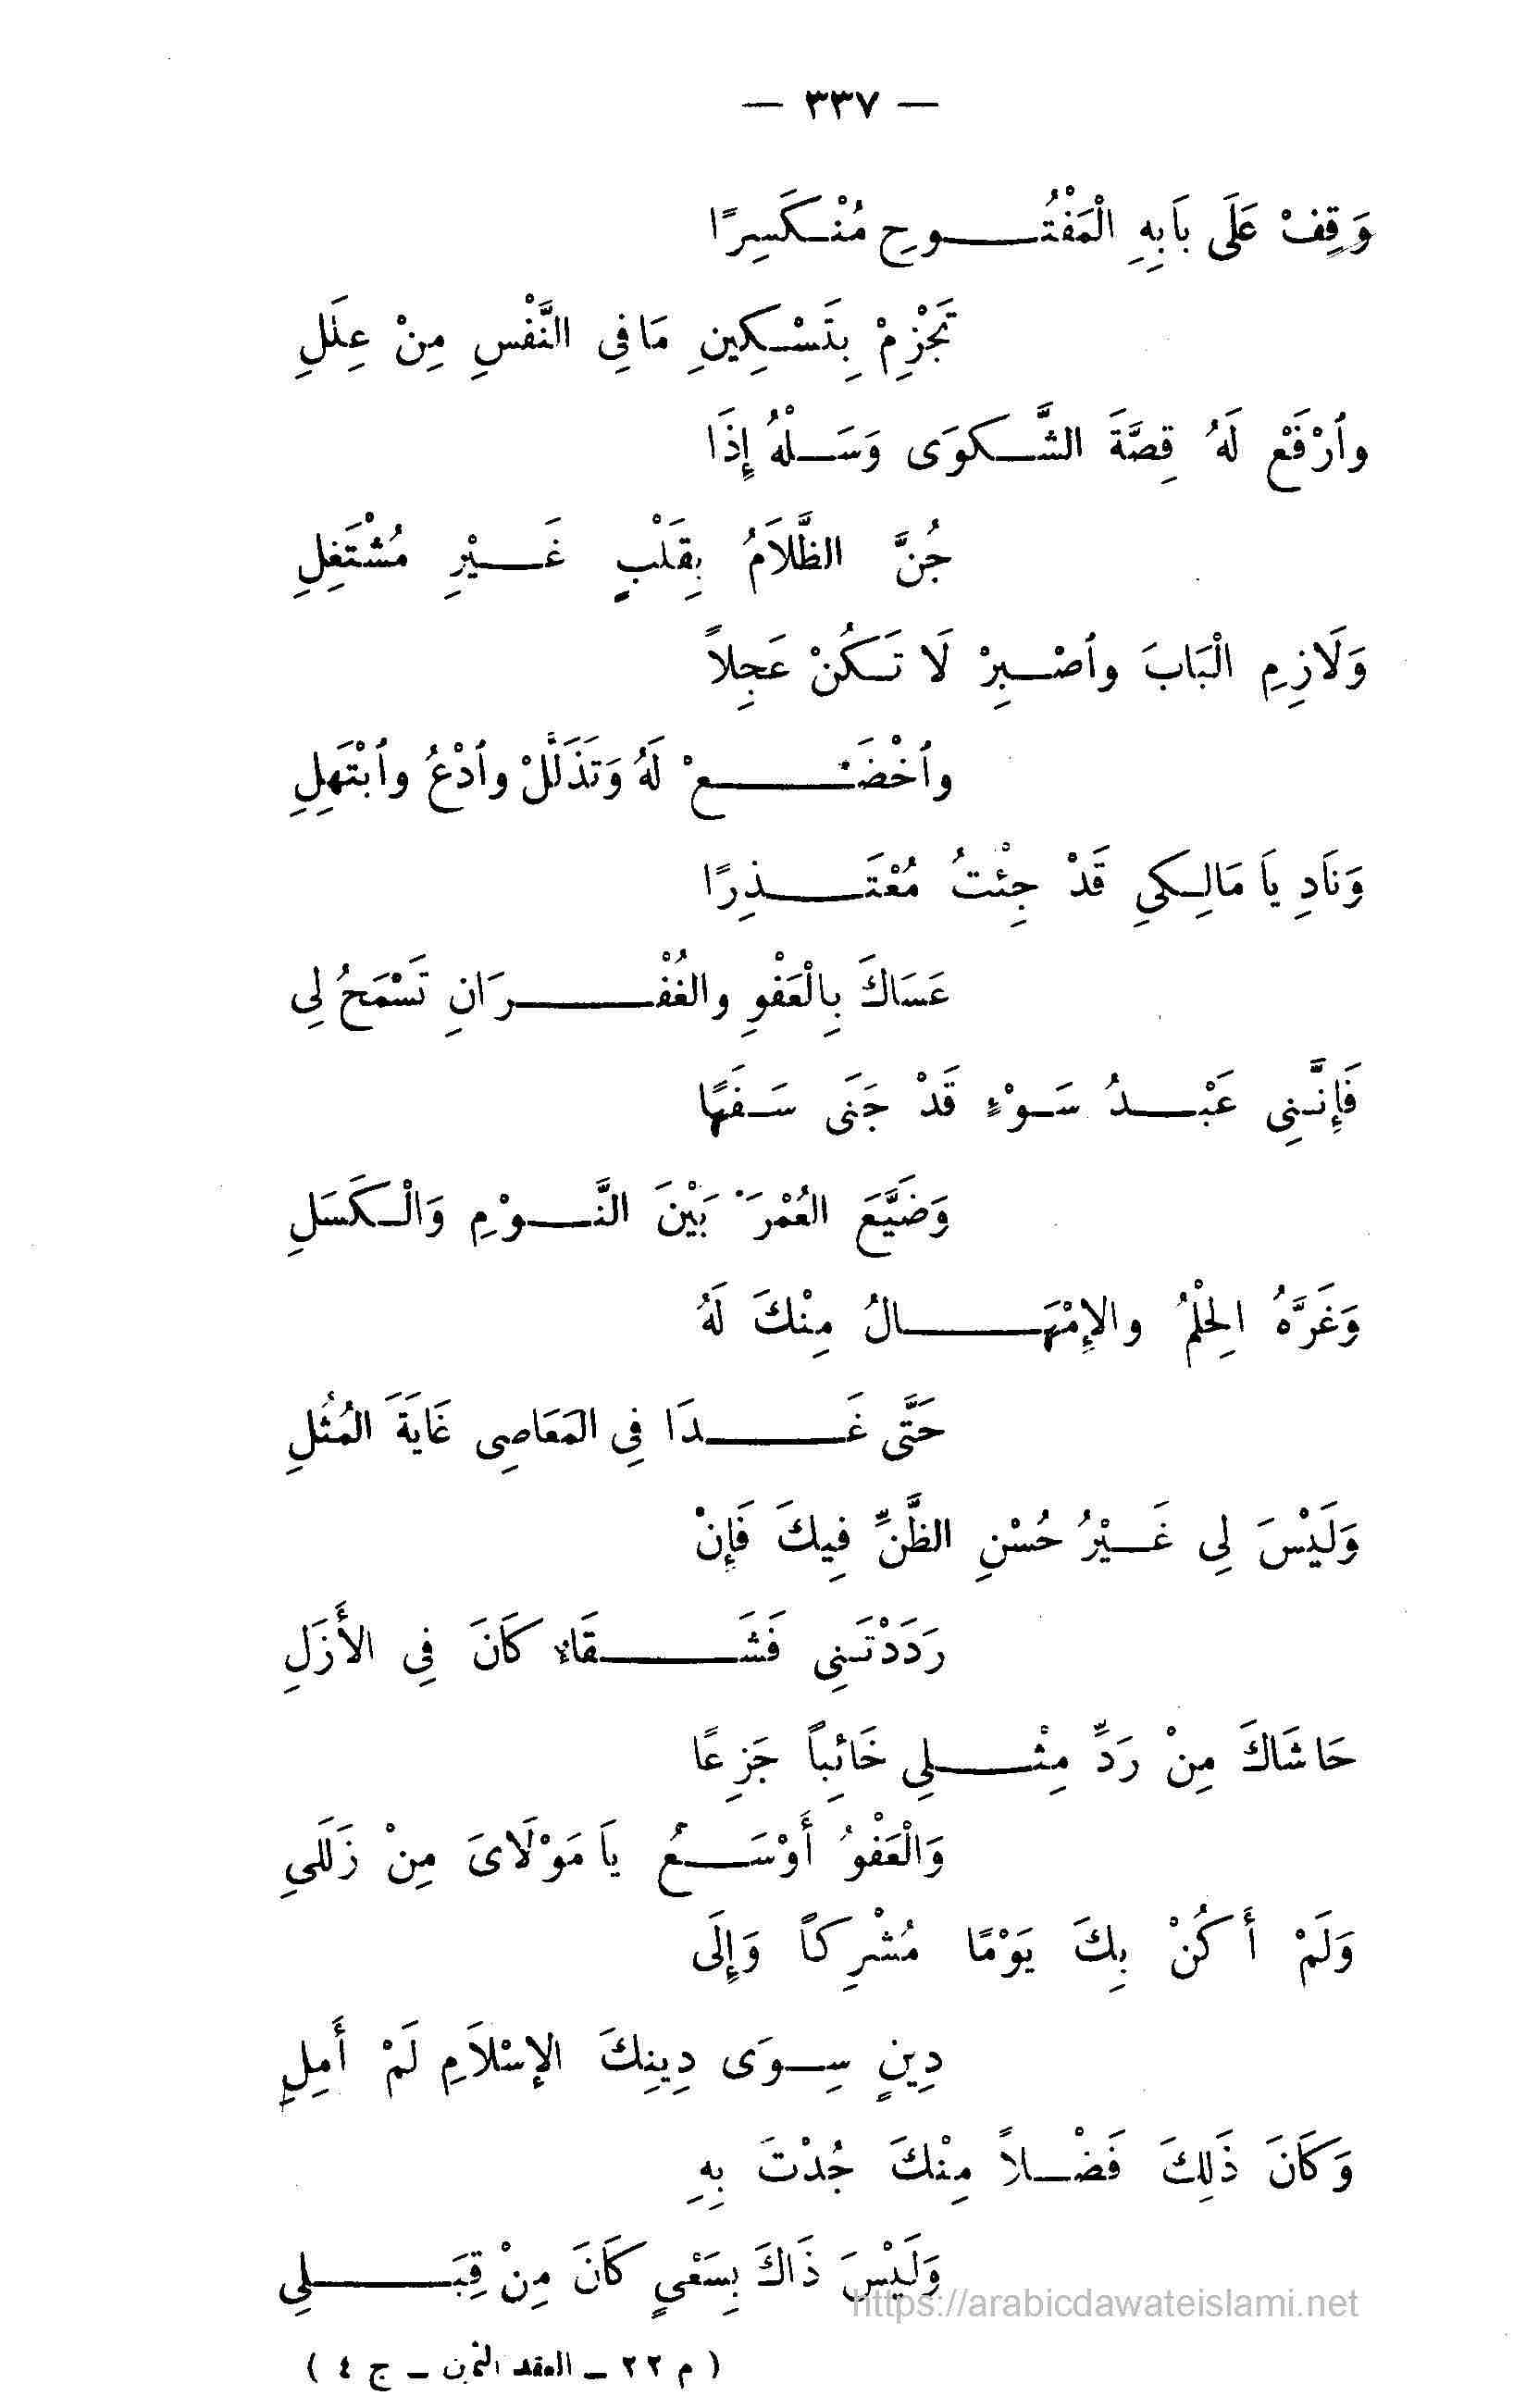 — ٣٣٧ —
وَقِفْ عَلَى بَابِهِ الْمَفْتُوحِ مُنْكَسِرًا
تَجْزِمْ بِتَسْكِينِ مَا فِى النَّفْسِ مِنْ عِلَلِ
وٱرْفَعْ لَهُ قِصَّةَ الشَّكوَى وَسَلْهُ إِذَا
جُنَّ الظَّلاَمُ بِقَلْبٍ غَيْرِ مُشْتَغِلِ
وَلَازِمِ الْبَابَ وٱصْبِرْ لَا تَكُنْ عَجِلاً
وٱخْضَعْ لَهُ وَتَذَلَّلْ وٱدْعُ وٱبْتَهِلِ
وَنَادِ يَا مَالِكِى قَدْ جِئْتُ مُعْتَذِرًا
عَسَاكَ بِالْعَفْوِ والغُفْرَانِ تَسْمَحُ لِى
فَإِنَّنِى عَبْدُ سَوْءٍ قَدْ جَنَى سَفَهًا
وَضَيَّعَ العُمْرَ بَيْنَ النَّوْمِ وَالْكَسَلِ
وَغَرَّهُ الحِلْمُ والإِمْهَالُ مِنْكَ لَهُ
حَتَّى غَدَا فِى المَعَاصِى غَايَةَ المُثُلِ
وَلَيْسَ لِى غَيْرُ حُسْنِ الظَّنِّ فِيكَ فَإِنْ
رَدَدْتَنِى فَشَقَاءٌ كَانَ فِى الأَزَلِ
حَاشَاكَ مِنْ رَدِّ مِثْلِى خَائِباً جَزِعًا
وَالْعَفْوُ أَوْسَعُ يَا مَوْلَاىَ مِنْ زَلَلِى
وَلَمْ أَكُنْ بِكَ يَوْمًا مُشْرِكاً وَإِلَى
دِينٍ سِوَى دِينِكَ الإِسْلاَمِ لَمْ أَمِلِ
وَكَانَ ذَلِكَ فَضْلاً مِنْكَ جُدْتَ بِهِ
وَلَيْسَ ذَاكَ بِسَعْىٍ كَانَ مِنْ قِبَلِى
https://arabicdawateislami.net
( م ٢٢ – العقد الثمين – ج ٤ )